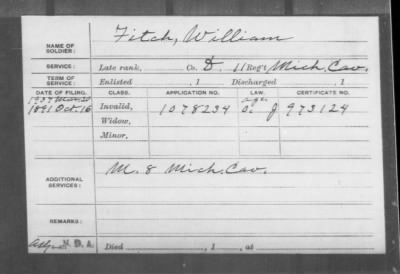 NAME OF SOLDIER: Fitch, William
SERVICE: Late rank, Co. D, 11 Reg't Mich. Cav.
TERM OF SERVICE: Enlisted , 1 Discharged , 1
DATE OF FILING. CLASS. APPLICATION NO. LAW. CERTIFICATE NO.
1891 Oct. 16 Invalid, 1078234 973124
Widow,
Minor,
ADDITIONAL SERVICES: M. 8 Mich. Cav.
REMARKS:
Died , 1 , at